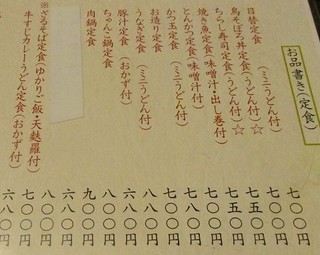 お品書き(定食)
日替定食 (ミニうどん付) 七〇〇円
鳥そぼろ丼定食(うどん付)☆ 七〇〇円
ちらし寿司定食(うどん付)☆ 七五〇円
焼き魚定食(味噌汁・出し巻付) 七五〇円
とんかつ定食(味噌汁付) 七〇〇円
かつ玉定食 (ミニうどん付) 七〇〇円
お造り定食
うなぎ定食 (ミニうどん付) 八八〇円
豚汁定食 (おかず付)
ちゃんこ鍋定食
肉鍋定食 九〇〇円
※ざるそば定食(ゆかりご飯・天麩羅付) 七〇〇円
牛すじカレーうどん定食(おかず付) 六八〇円